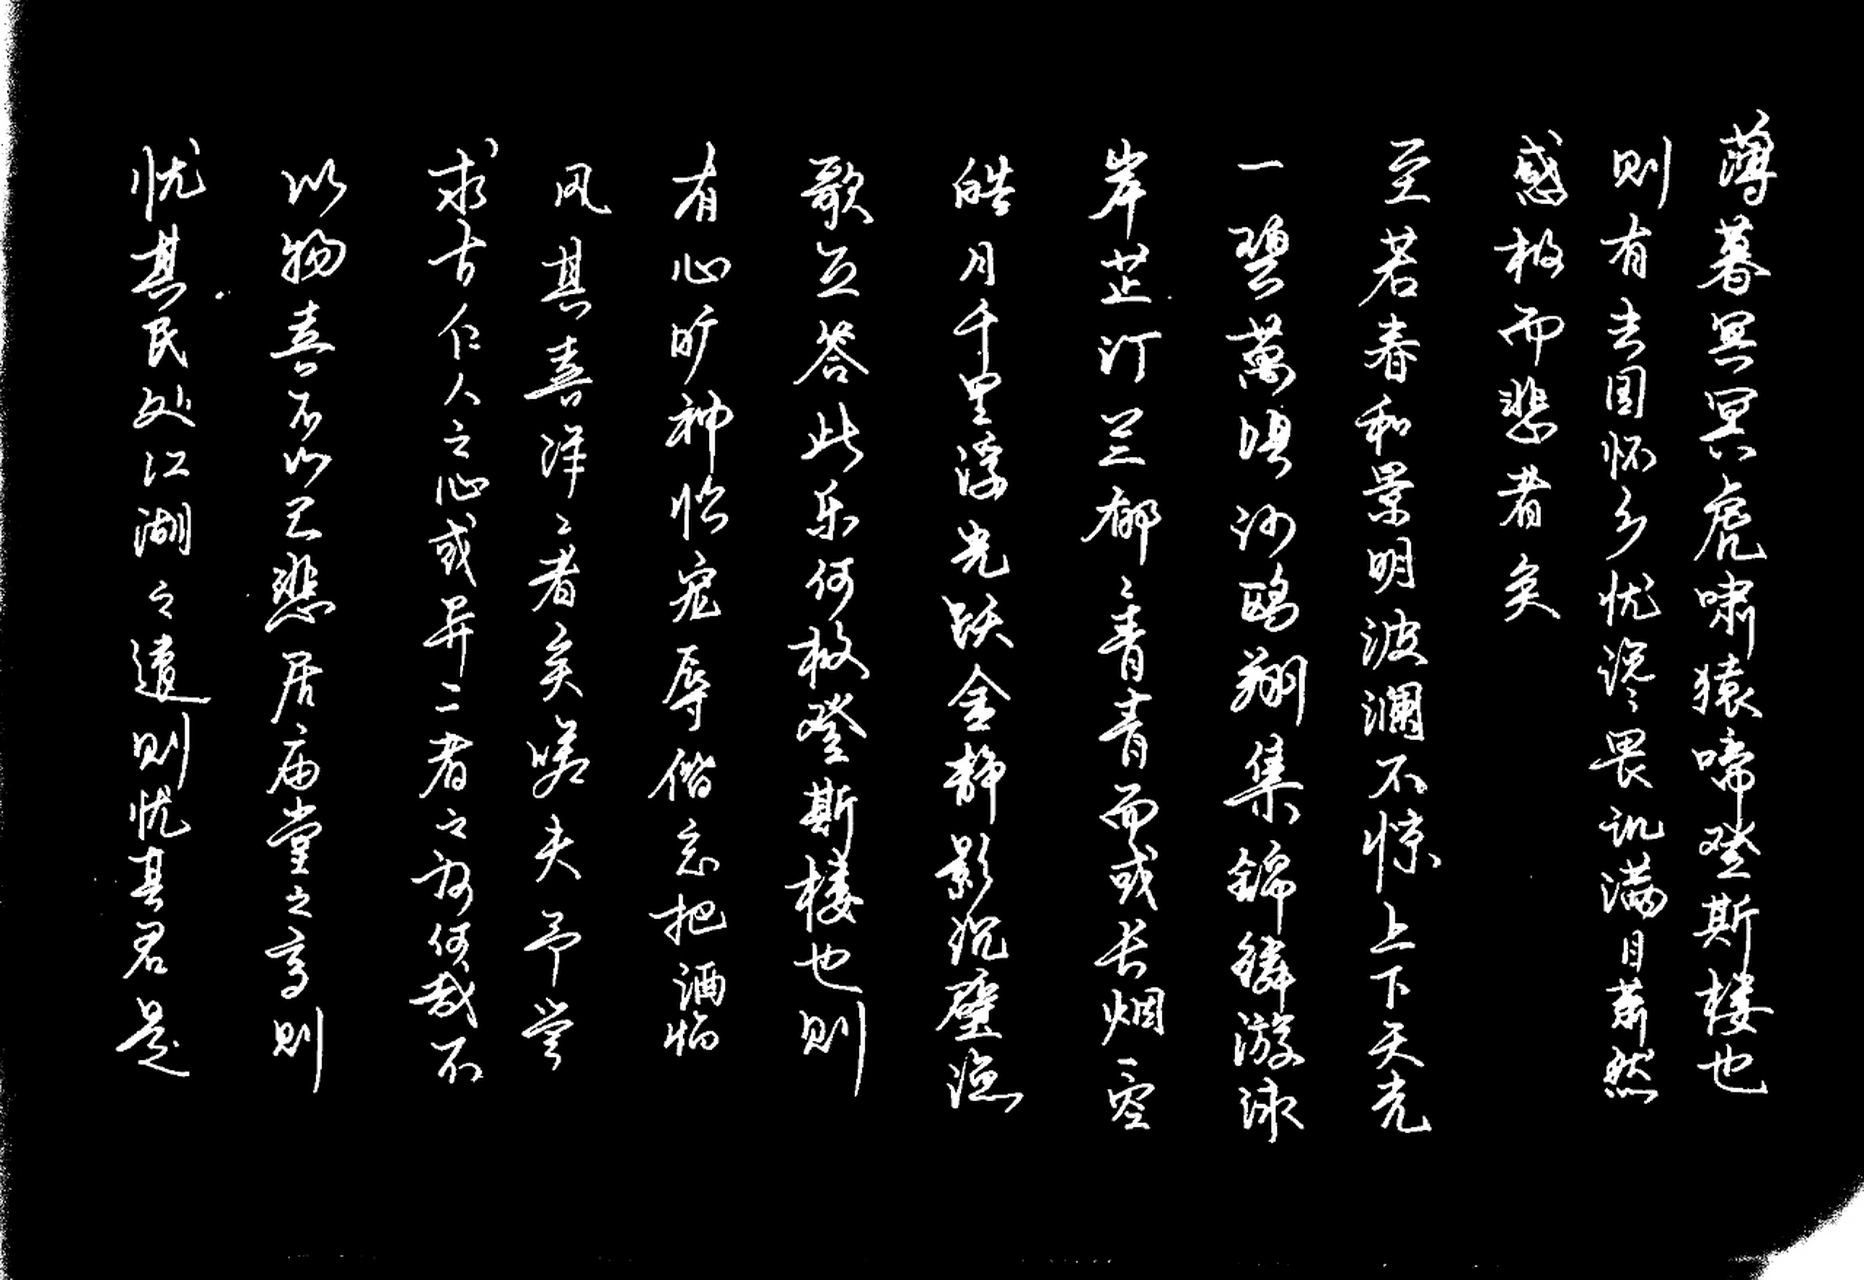 薄暮冥冥虎啸猿啼登斯楼也
则有去国怀乡忧谗畏讥满目萧然
感极而悲者矣
至若春和景明波澜不惊上下天光
一碧萬顷沙鸥翔集锦鳞游泳
岸芷汀兰郁〻青青而或长烟一空
皓月千里浮光跃金静影沉璧渔
歌互答此乐何极登斯楼也则
有心旷神怡宠辱偕忘把酒临
风其喜洋〻者矣嗟夫予尝
求古仁人之心或异二者之为何哉不
以物喜不以己悲居庙堂之高则
忧其民处江湖之遠则忧其君是